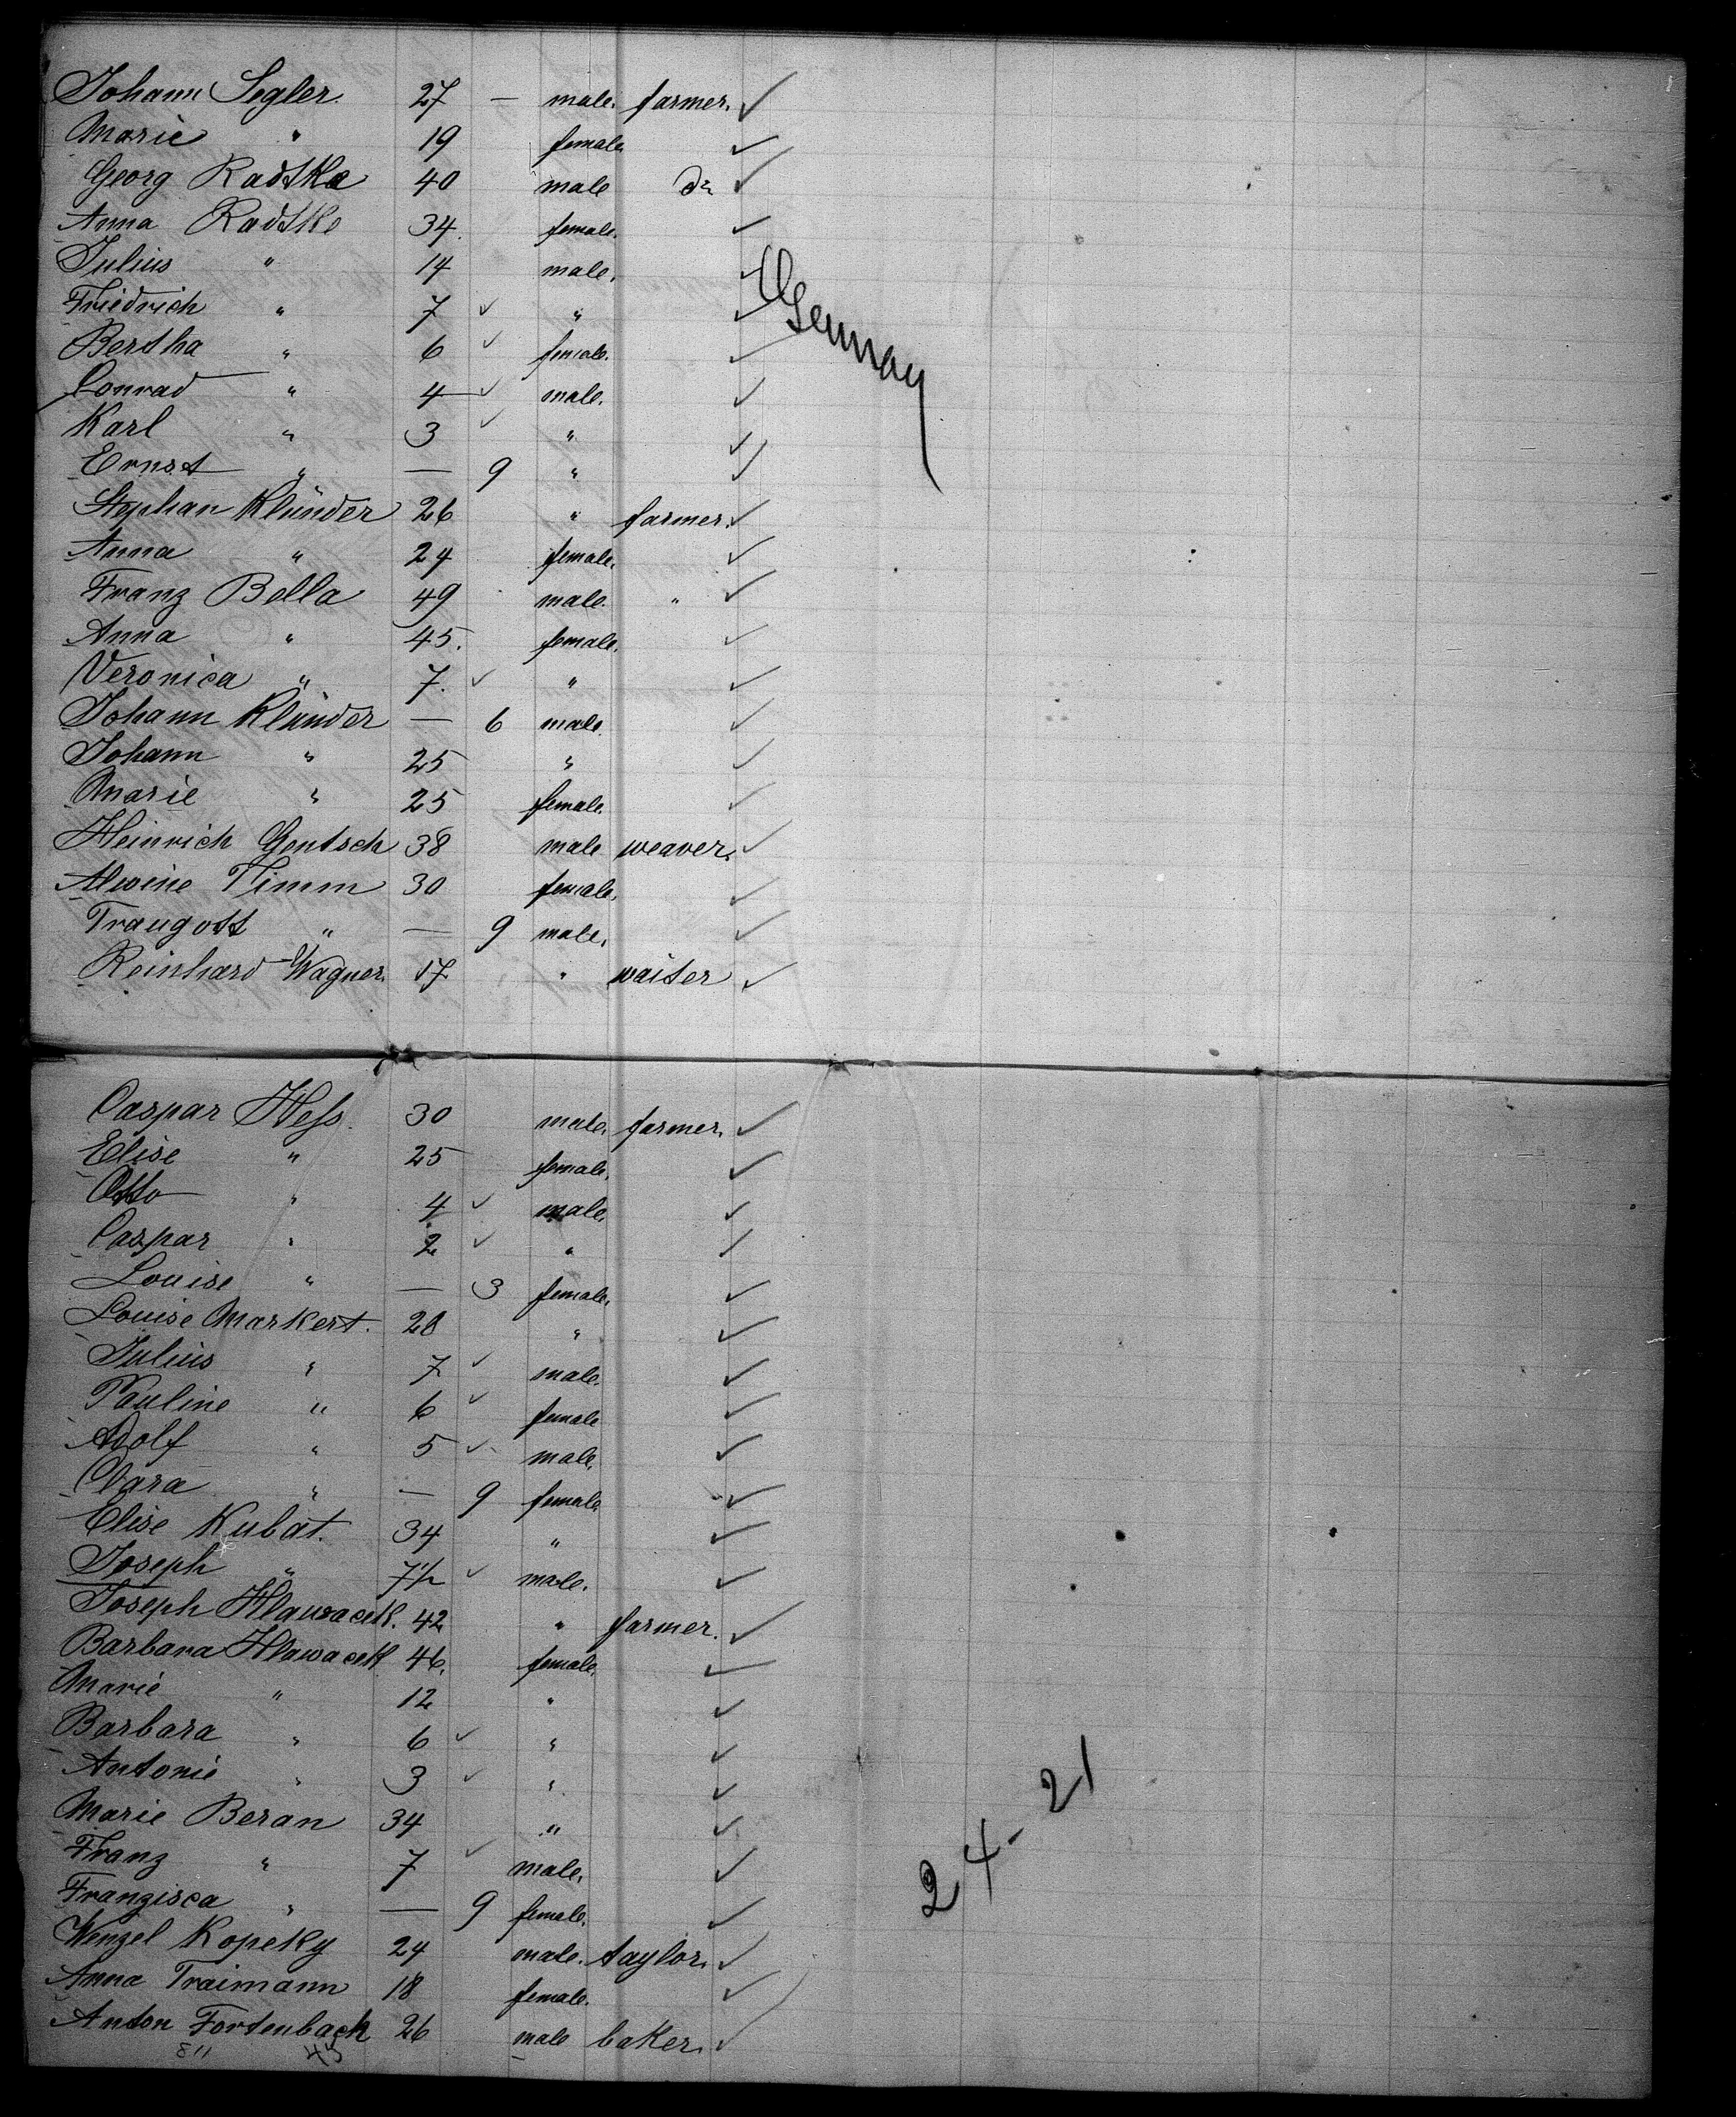 Johann Segler. 27 — male. farmer.
Marie " 19 female.
Georg Radtke 40 male do
Anna Radtke 34. female.
Julius " 14 male.
Friedrich " 7 "
Bertha " 6 female.
Conrad " 4 male.
Karl " 3 "
Ernst " — 9 "
Stephan Klünder 26 " farmer.
Anna " 24 female.
Franz Bella 49 male. "
Anna " 45. female.
Veronica " 7. "
Johann Klünder — 6 male.
Johann " 25 "
Marie " 25 female.
Heinrich Gentsch 38 male weaver.
Alwine Timm 30 female.
Traugott " — 9 male.
Reinhard Wagner. 17 " waiter
Germay
Caspar Hess. 30 male. farmer.
Elise " 25 female.
Otto " 4 male.
Caspar " 2 "
Louise " — 3 female.
Louise Markert. 28 "
Julius " 7 male.
Pauline " 6 female
Adolf " 5 male.
Clara " — 9 female.
Elise Kubat. 34 "
Joseph " 7 1/2 male.
Joseph Hlawacek. 42 " farmer.
Barbara Hlawacek 46. female.
Marie " 12 "
Barbara " 6 "
Antonie " 3 "
Marie Beran 34 "
Franz " 7 male.
Franzisca " — 9 female.
Wenzel Kopeky 24 male. taylor.
Anna Traimann 18 female.
Anton Fortenbach 26 male baker.
45
24-21